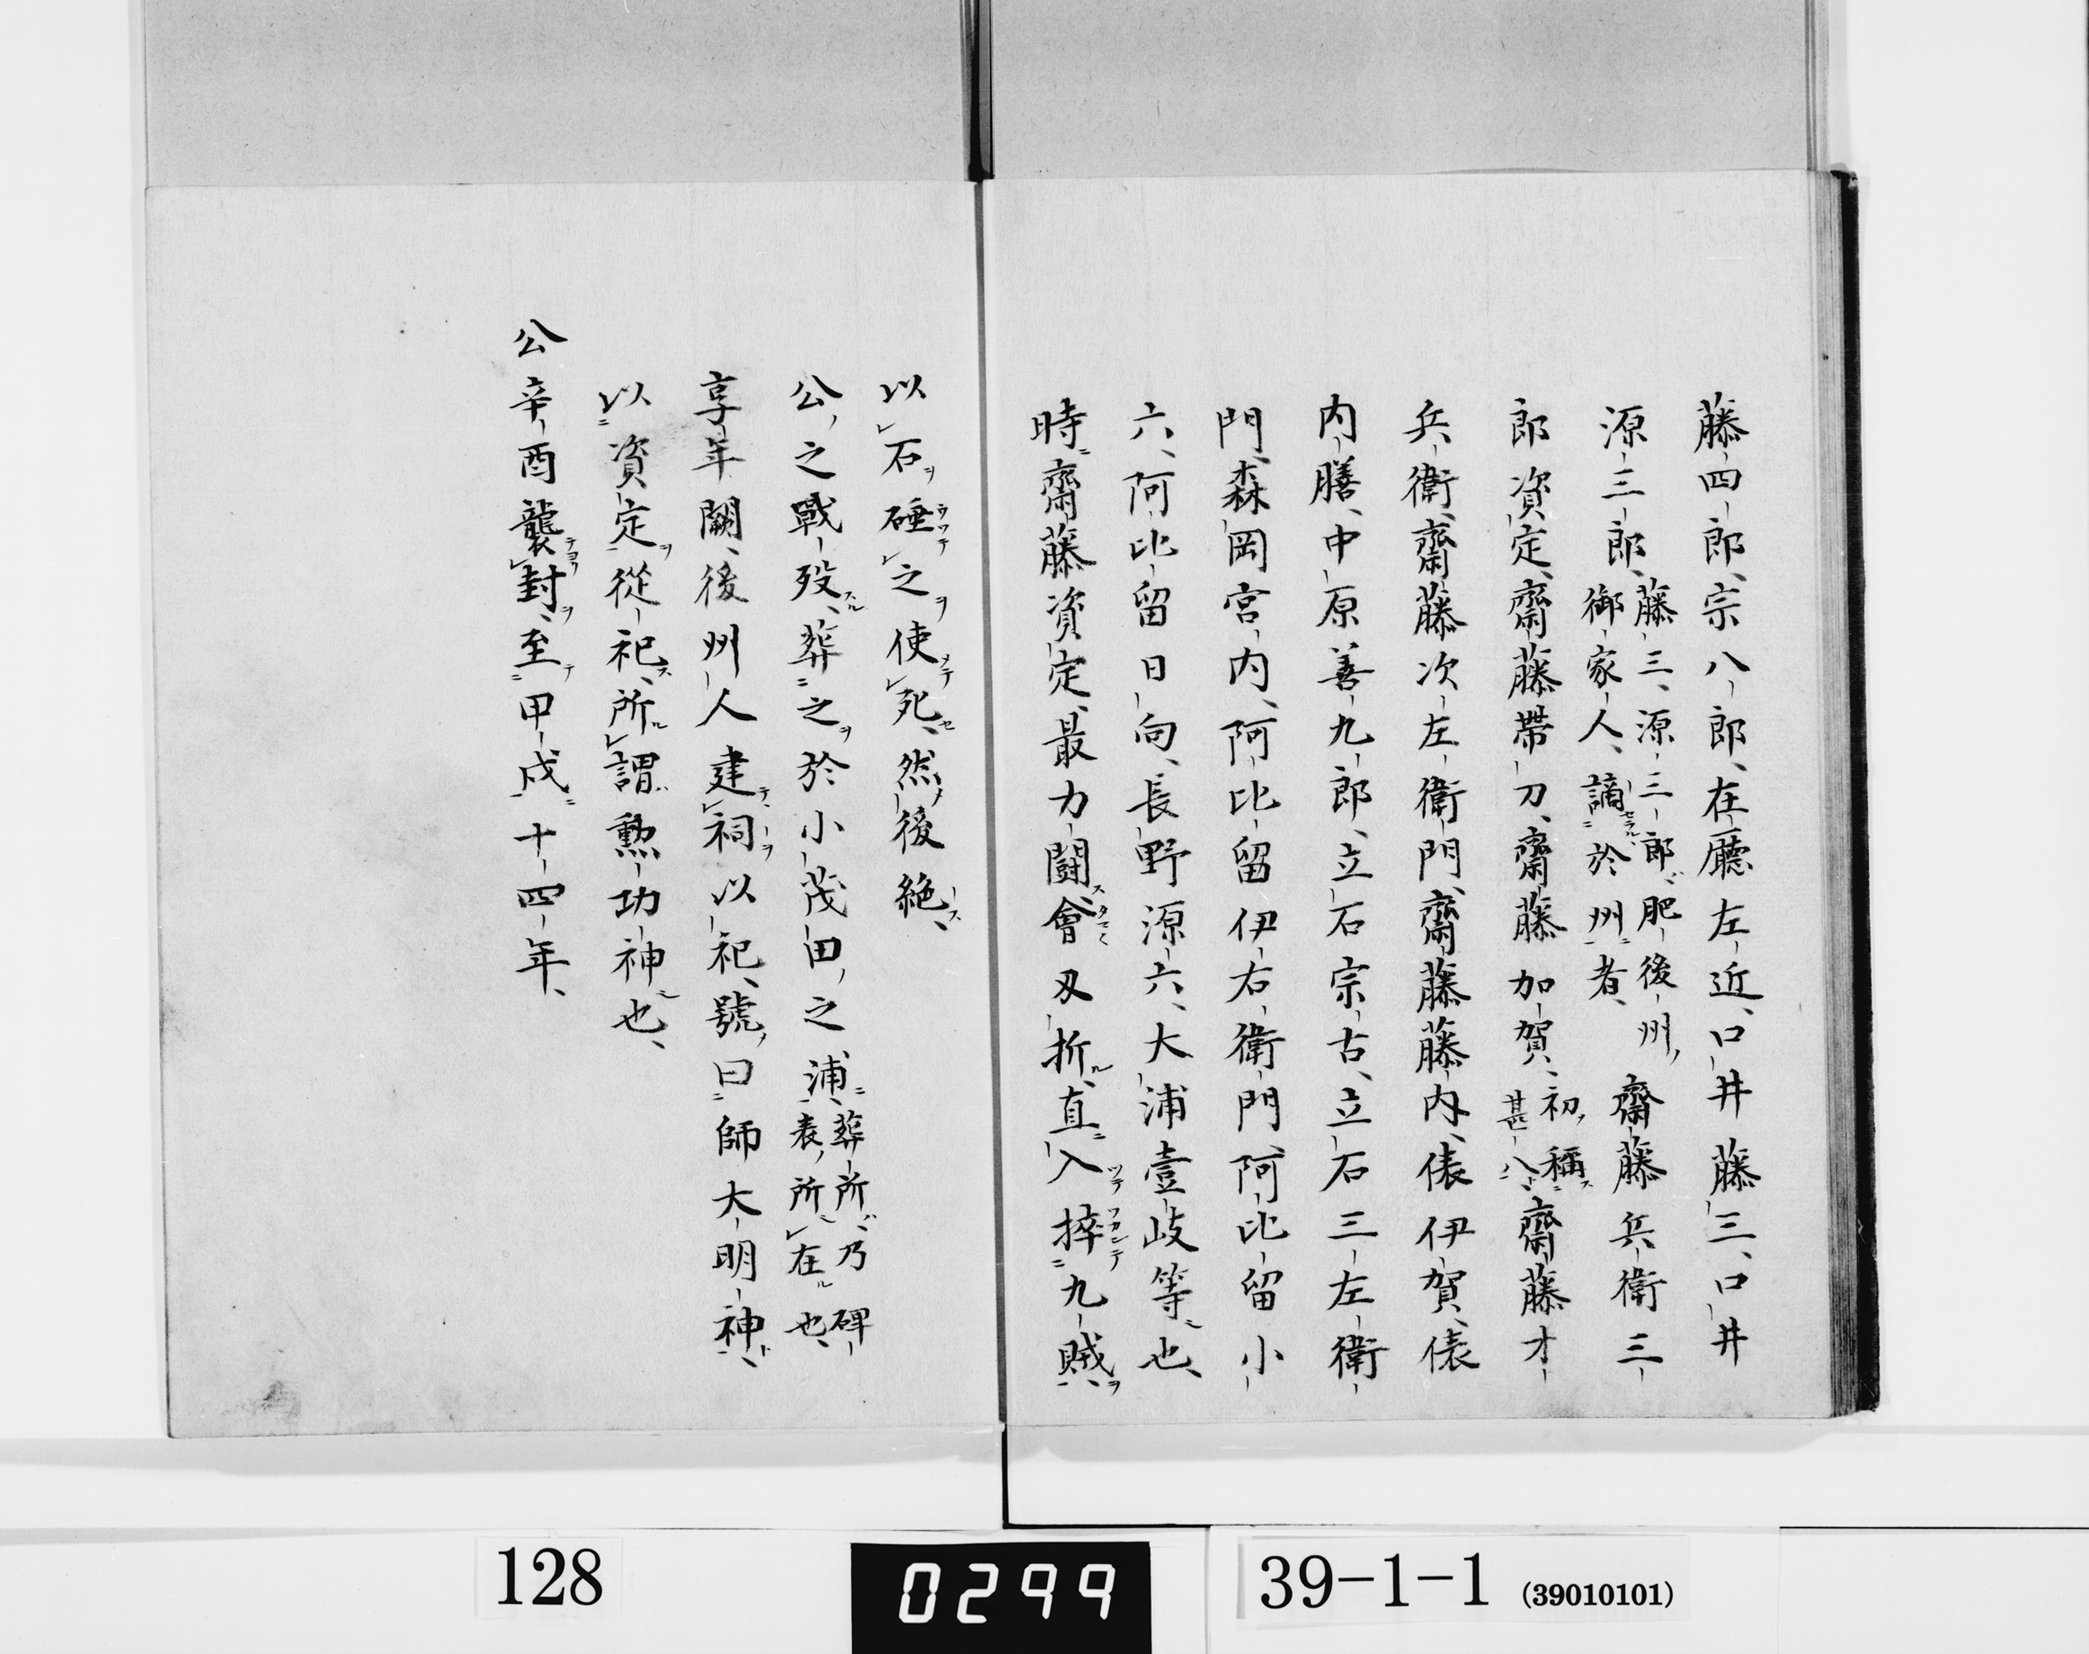 藤四郎、宗八郎、在廳左近、口井藤三、口井
源三郎、藤三、源三郎、肥後州御家人、謫於州者、齋藤兵衛三
郎資定、齋藤帶刀、齋藤加賀、初稱甚八、齋藤才
兵衛、齋藤次左衛門、齋藤藤内、俵伊賀、俵
内膳、中原善九郎、立石宗古、立石三左衛
門、森岡宮内、阿比留伊右衛門、阿比留小
六、阿比留日向、長野源六、大浦壹岐等也、
時齋藤資定、最力鬪、會刄折、直入捽九賊、
以石硾之使死、然後絶、
公之戰歿、葬之於小茂田之浦、葬所乃碑表所在也、
享年闕、後州人建祠以祀、號曰師大明神、
以資定從祀、所謂勲功神也、
公辛酉襲封、至甲戌十四年、
128
0299
39-1-1 (39010101)